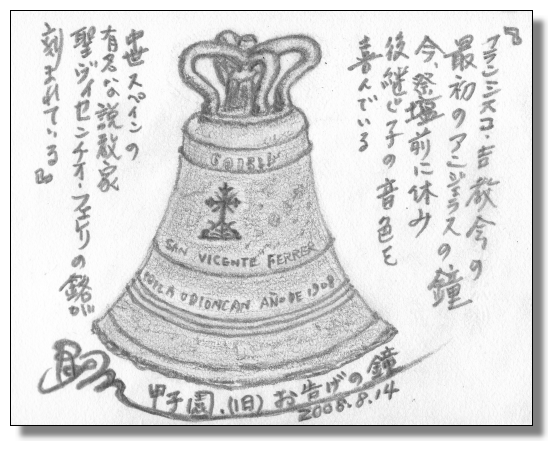 フランシスコ・吉教会の
最初のアンジェラスの鐘
今、祭壇前に休み
後継じ子の音色を
喜んでいる
SAN VICENTE FERRER
ODIONCAN AÑO DE 1908
中世スペインの
有名な説教家
聖ヴィセンチオ・フェレリの銘が
刻まれている
甲子園、(旧)お告げの鐘
2008.8.14